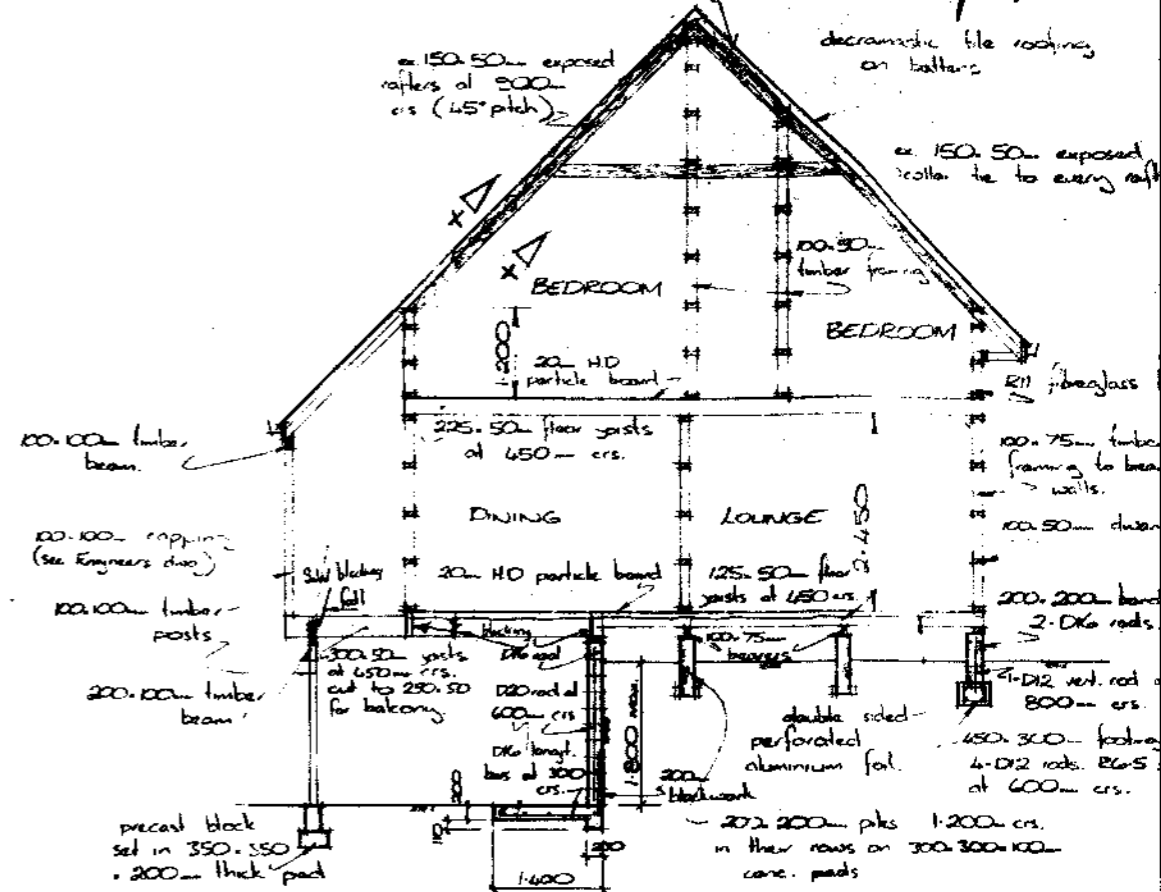 decramastic tile roofing
on battens
ex 150.50mm exposed
rafters at 900mm
crs (45° pitch)
ex. 150.50mm exposed
collar tie to every
100.50mm
timber framing
BEDROOM
BEDROOM
20mm HD
particle board
R11 fibreglass
100.100mm timber
beam.
225.50mm floor joists
at 450mm crs.
100.75mm
framing to
walls.
DINING
LOUNGE
2.450
100.50mm
100.100mm capping
(see Engineers dwg)
Solid blocking
fall
20mm HD particle board
125.50mm floor
joists at 450 crs.
100.100mm timber
posts
200.200mm
2-D16 rods.
blocking
D16 rod
100.75mm
bearers
300.50mm joists
at 450mm crs.
cut to 250.50
for balcony
200.100mm timber
beam
D20 rod at
600mm crs
D16 longt.
bars at 300
crs.
1.800 max.
D12 vert. rod
800mm crs.
double sided
perforated
aluminium foil.
450.300mm footing
4-D12 rods.
at 600mm crs.
200
200mm
blockwork
precast block
set in 350.350
.200mm thick pad
200
1.400
200.200mm piles 1.200mm crs.
in their rows on 300.300.100mm
conc. pads